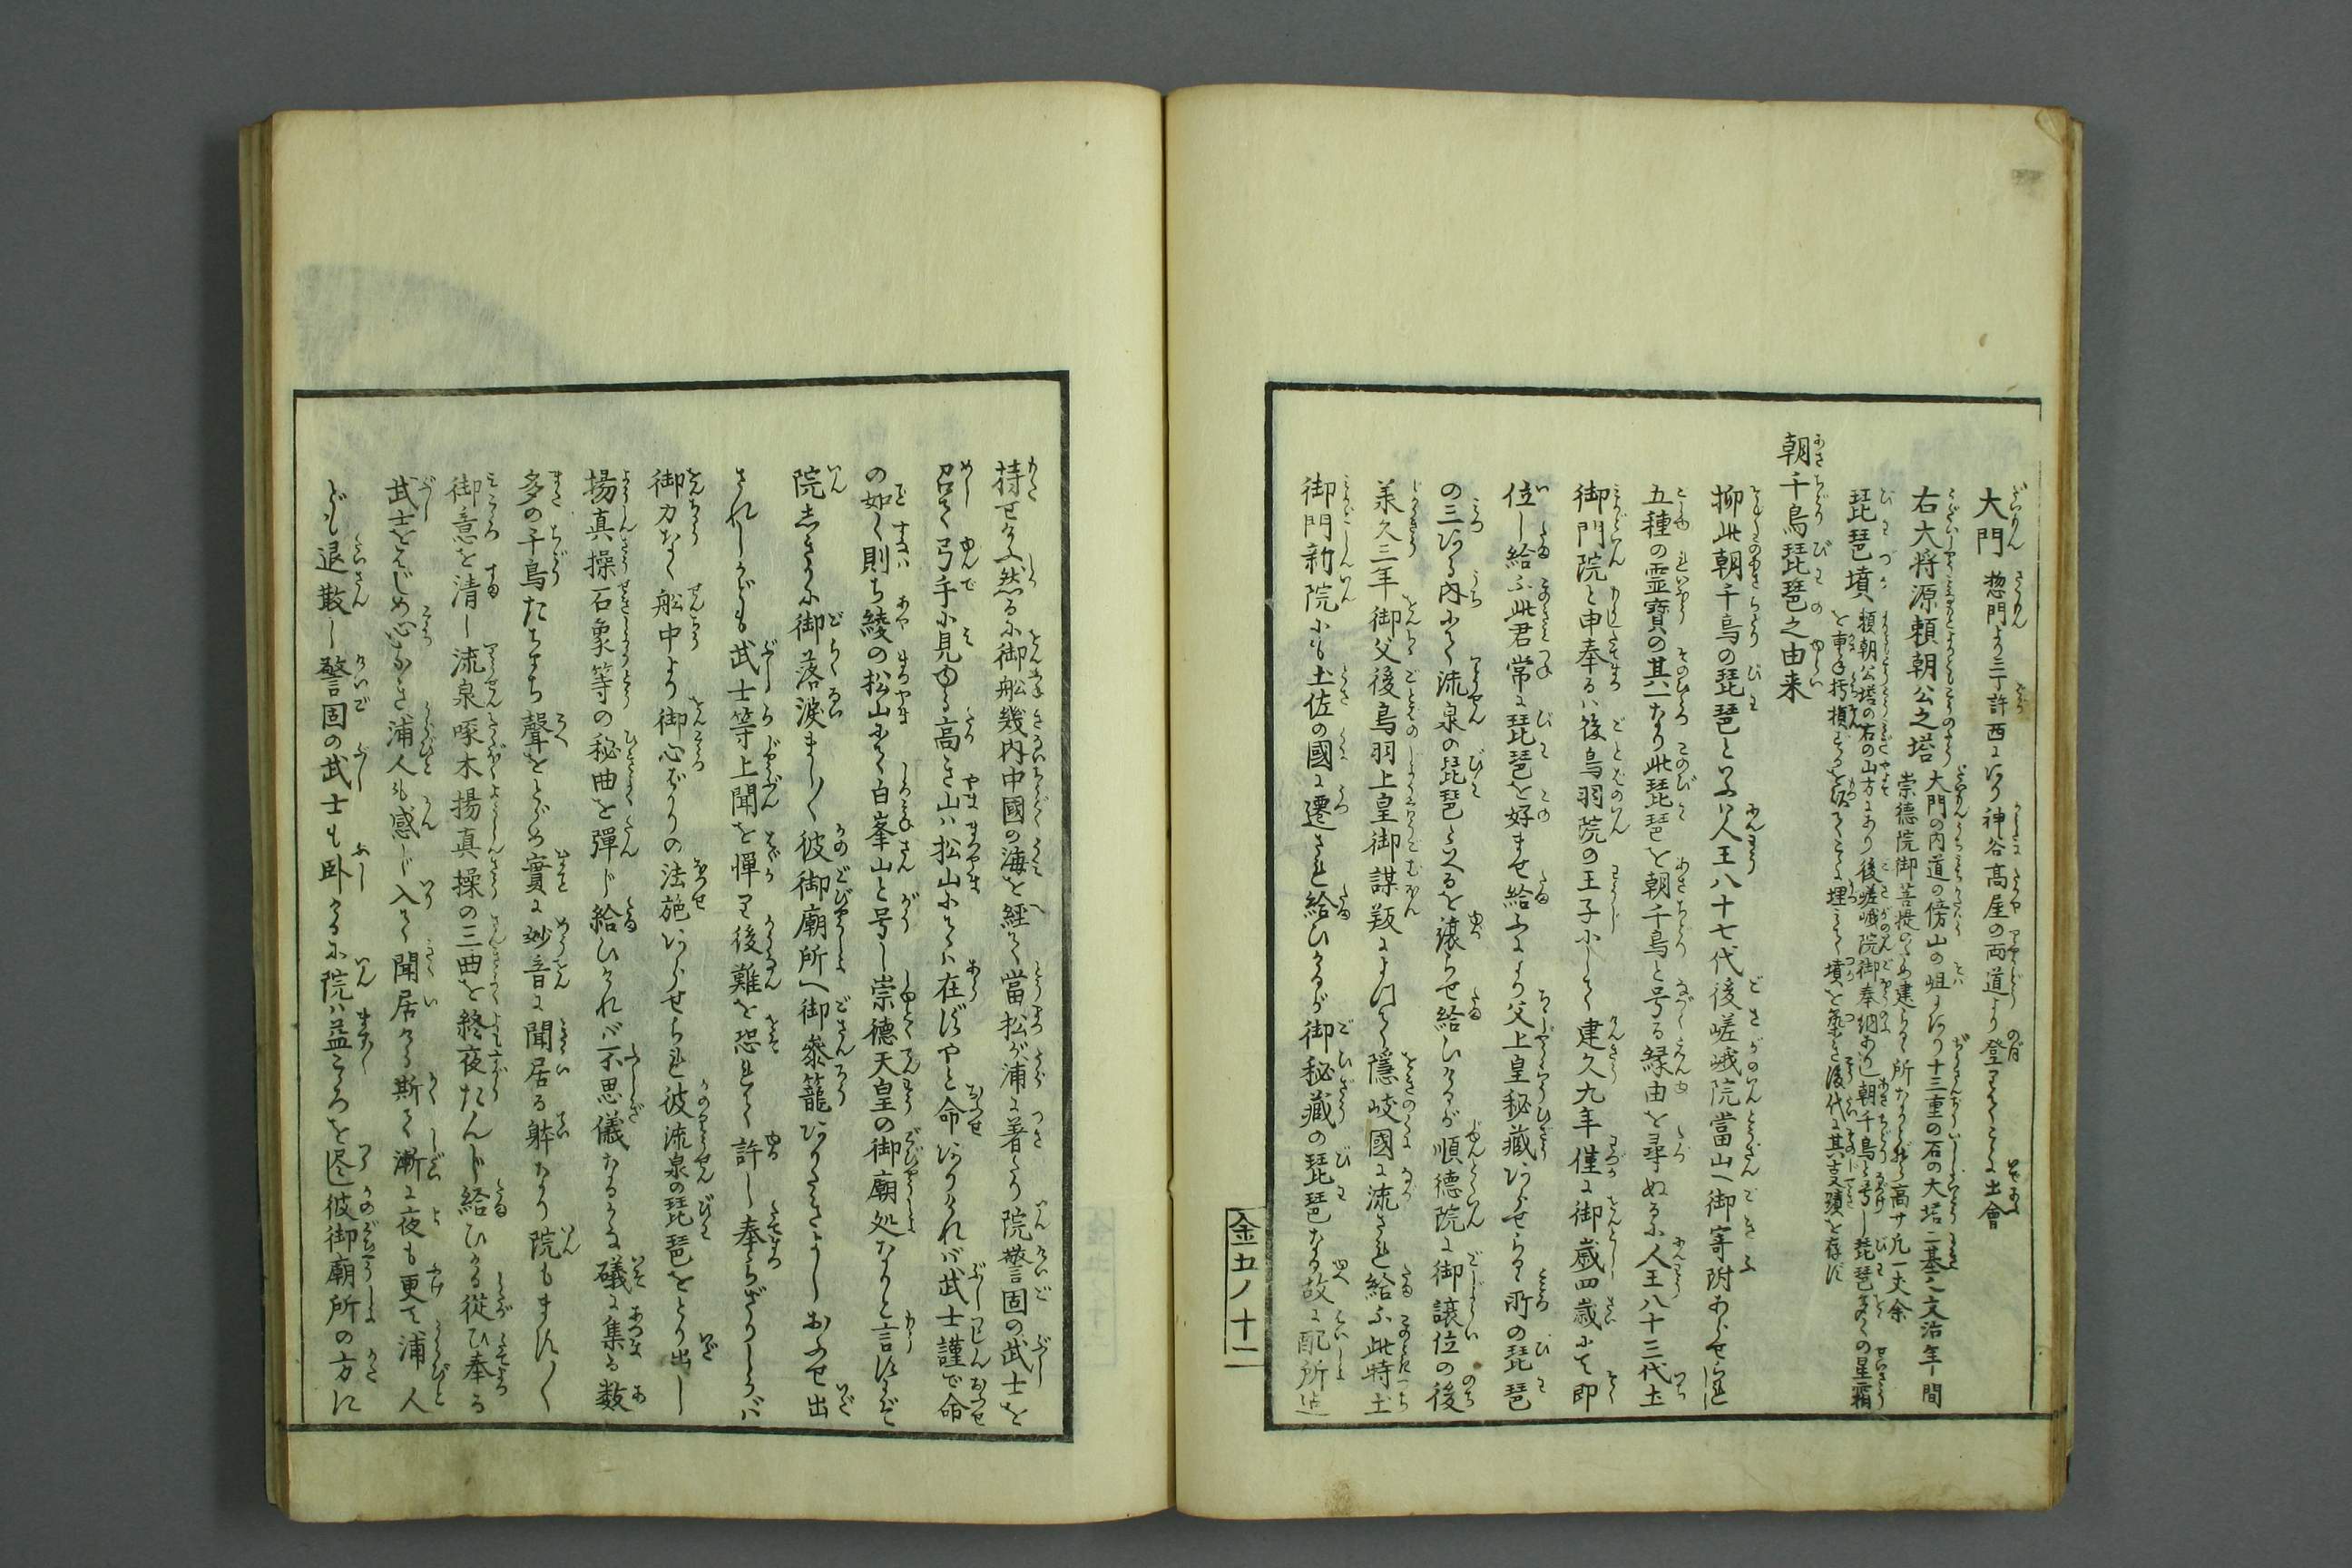 大門 惣門より三丁許西にあり神谷高屋の両道より登りて爰に出會
右大将源頼朝公之塔 大門の内道の傍山の岨にあり十三重の石の大塔二基也文治年間
崇徳院御菩提のため建らる所なりと云高サ凡一丈余
琵琶墳 頼朝公塔の右の山方にあり後嵯峨院御奉納ありし朝千鳥と号し琵琶多くの星霜
を重ね朽損ぜしを以てここに埋みて墳を築き後代に其古蹟を存ぜり
朝千鳥琵琶之由来
抑此朝千鳥の琵琶といふハ人王八十七代後嵯峨院當山へ御寄附あらせられし
五種の霊寳の其一なり此琵琶を朝千鳥と号る縁由を尋ぬるに人王八十三代土
御門院と申奉るハ後鳥羽院の王子にして建久九年僅に御歳四歳にて即
位し給ふ此君常に琵琶を好ませ給ふにより父上皇秘蔵あらせらる所の琵琶
の三ツある内にて流泉の琵琶といへるを譲らせ給ひけるが順徳院に御譲位の後
美久三年御父後鳥羽上皇御謀叛によつて隠岐國に流され給ふ此時土
御門新院にも土佐の國に遷され給ひけるが御秘蔵の琵琶なる故に配所迄
金五ノ十二
持せ給ふ然るに御船幾内中國の海を経て當松が浦に著たり院警固の武士を
召て弓手に見ゆる高き山ハ松山にてハ在ずやと命ありければ武士謹で命
の如く則ち綾の松山にて白峯山と号し崇徳天皇の御廟処なりと言けれバ
院志きりに御落涙まし〱彼御廟所へ御参籠ありたきよしおふせ出
されしかども武士等上聞を憚りて後難を恐れて許し奉らざりしかバ
御力なく船中より御心ばかりの法施あらせられ彼流泉の琵琶をとり出し
揚真操石象等の秘曲を弾じ給ひければ不思儀なるかな礒に集る数
多の千鳥たちまち聲をとどめ實に妙音に聞居る躰なり院もます〱
御意を清し流泉啄木揚真操の三曲を終夜たんじ給ひける従ひ奉る
武士をはじめ心なき浦人も感じ入て聞居ける斯て漸に夜も更て浦人
ども退散し警固の武士も卧けるに院ハ益こころを尽し彼御廟所の方に